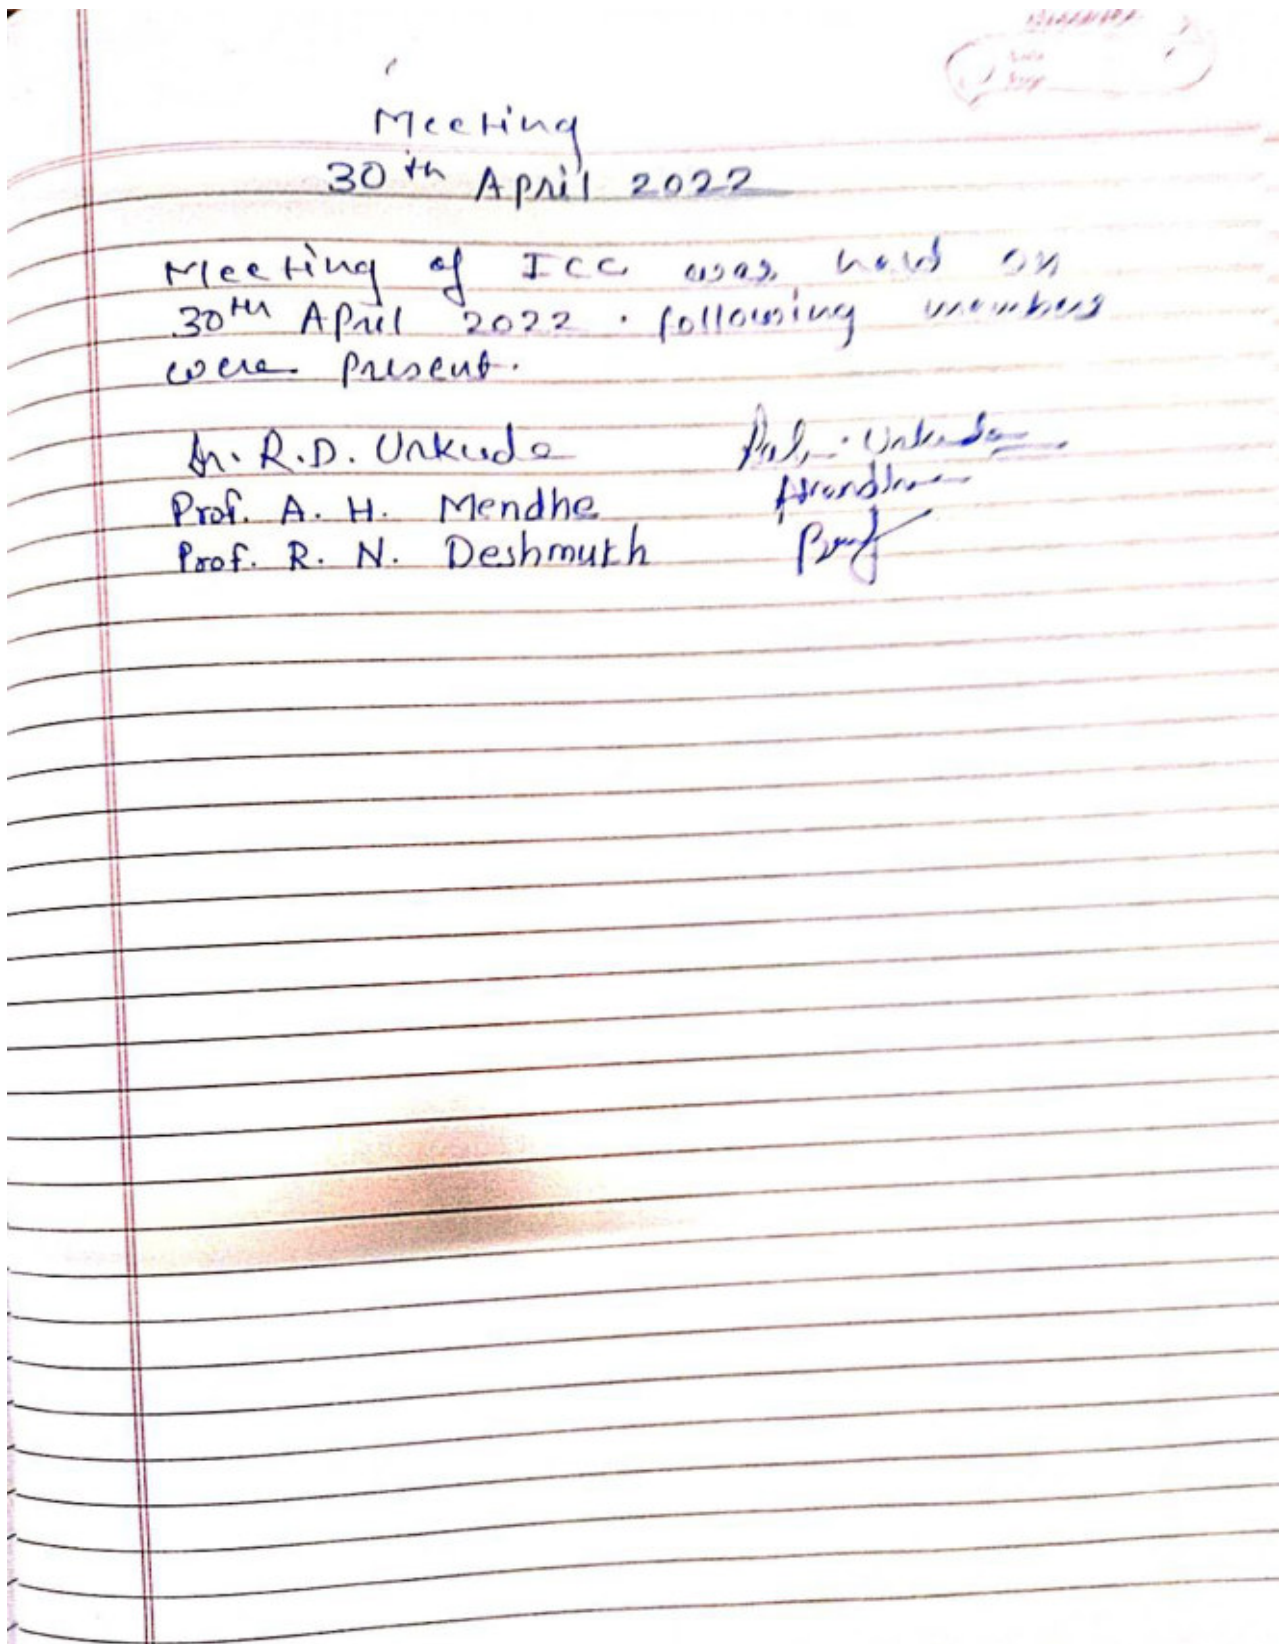 Meeting
30th April 2022
Meeting of ICC was held on
30th April 2022. following members
were present.
Dr. R.D. Urkude
Prof. A. H. Mendhe
Prof. R. N. Deshmukh